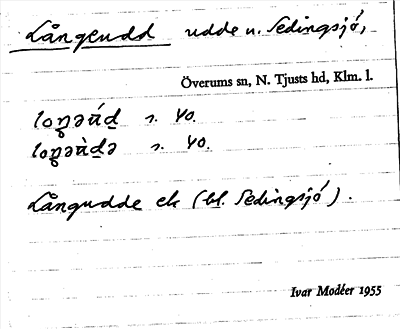 Långeudd udde n. Sedingsjö,
Överums sn, N. Tjusts hd, Klm. l.
loŋəúd̲ s. 40.
loŋəùd̲ə s. 40.
Långudde ek (bl. Sedingsjö).
Ivar Modéer 1955